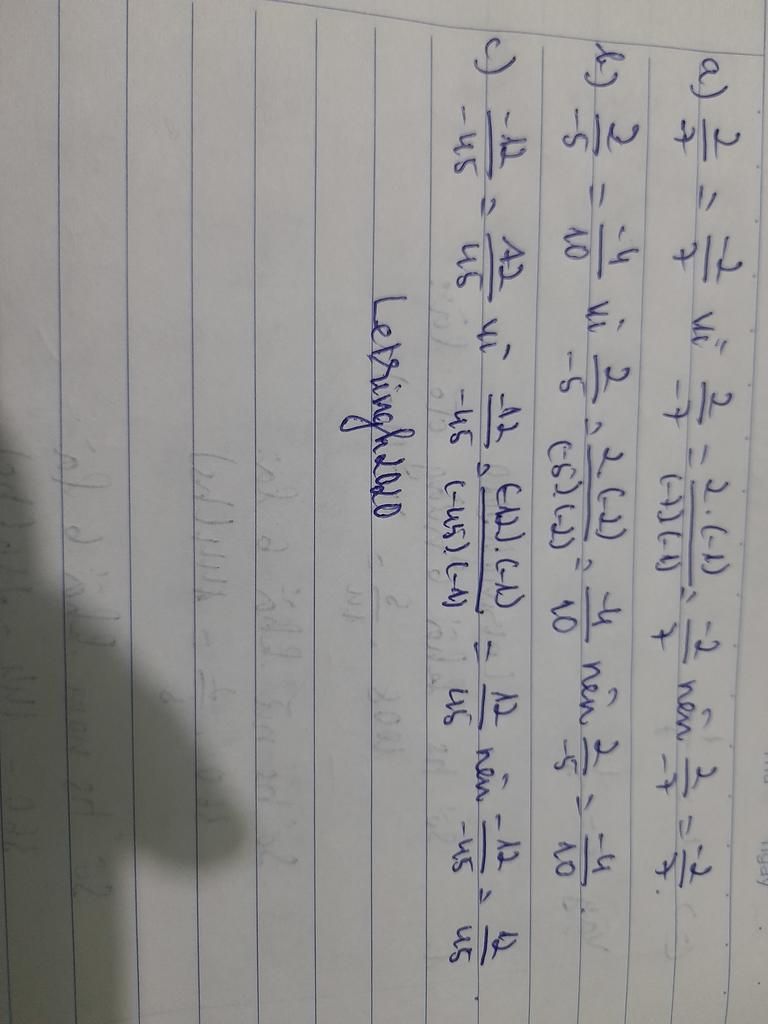 a) 2/-7 = -2/7 vì 2/-7 = 2.(-1)/(-7).(-1) = -2/7 nên 2/-7 = -2/7.
b) 2/-5 = -4/10 vì 2/-5 = 2.(-2)/(-5).(-2) = -4/10 nên 2/-5 = -4/10.
c) -12/-45 = 12/45 vì -12/-45 = (-12).(-1)/(-45).(-1) = 12/45 nên -12/-45 = 12/45.